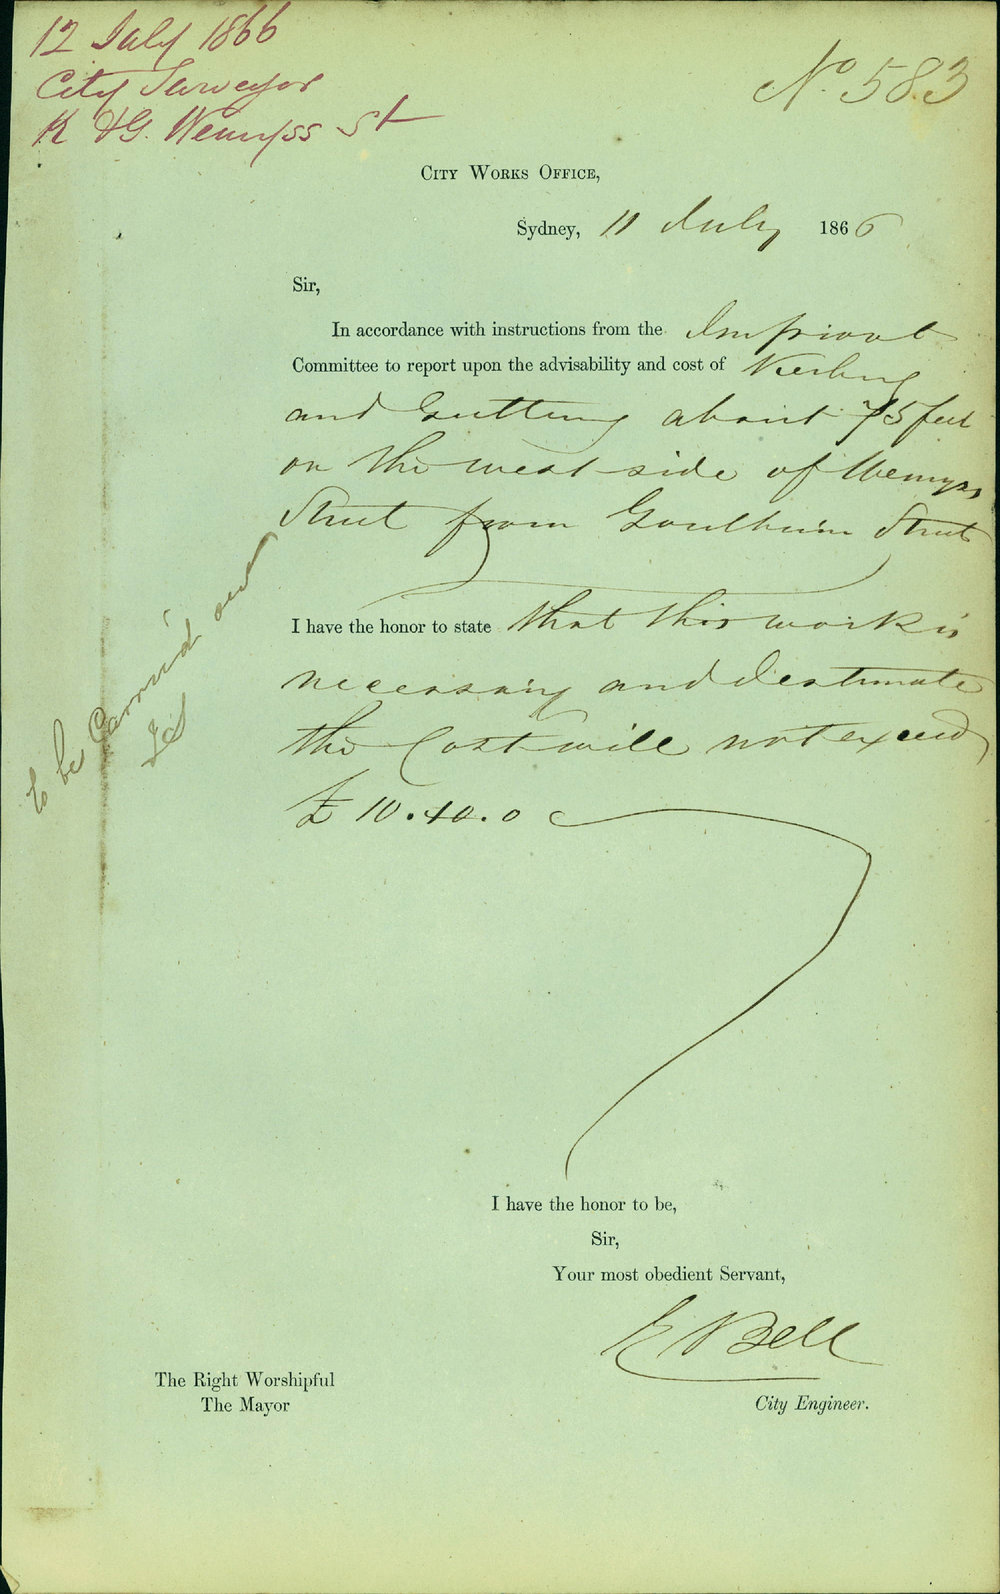 12 July 1866
City Surveyor
K & G. Wemyss St
No. 583
CITY WORKS OFFICE,
Sydney, 11 July 1866
Sir,
In accordance with instructions from the Improvmt
Committee to report upon the advisability and cost of Kerbing
and Guttering about 75 feet
on the west side of Wemyss
Street from Goulburn Street
I have the honor to state that this work is
necessary and I estimate
the Cost will not exceed
£ 10.10.0
to be Carried out
I have the honor to be,
Sir,
Your most obedient Servant,
E Bell
The Right Worshipful
The Mayor
City Engineer.